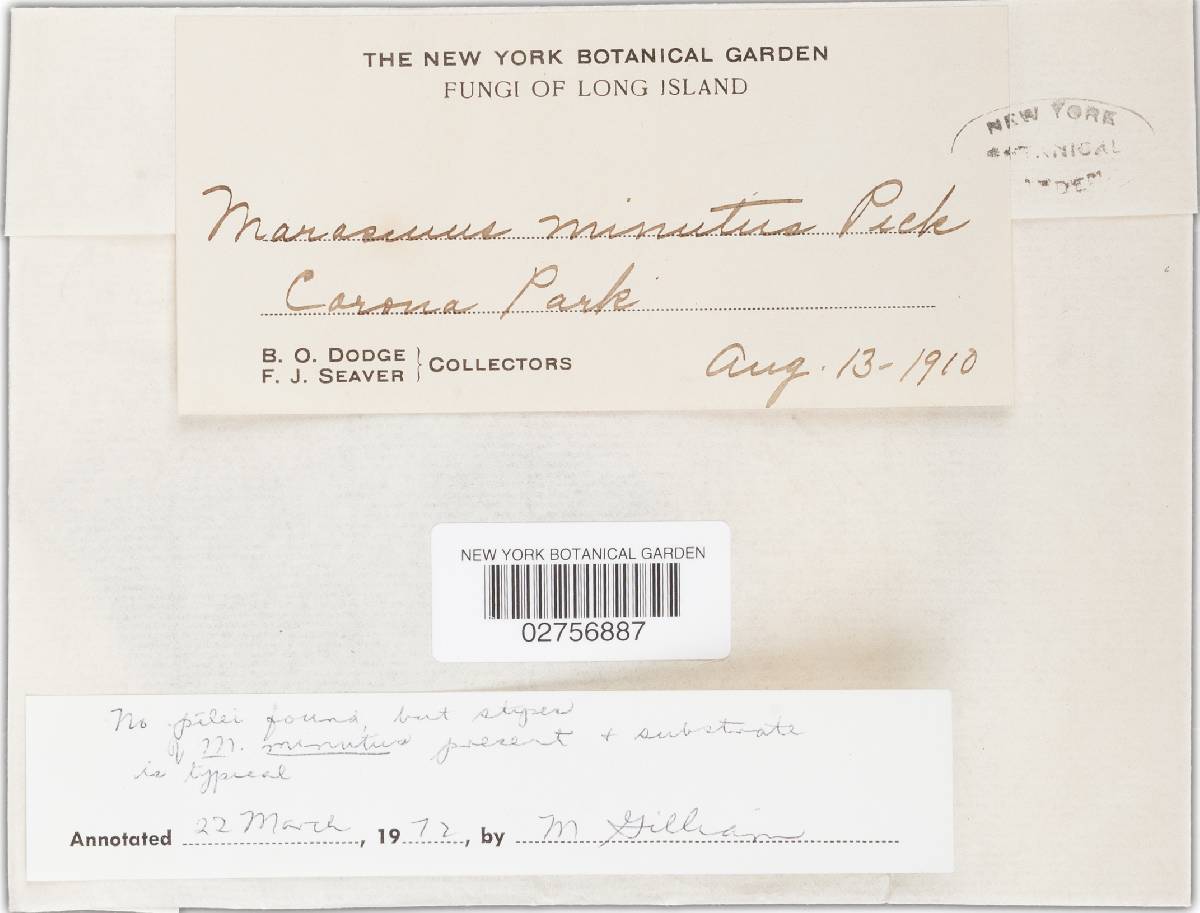 THE NEW YORK BOTANICAL GARDEN
FUNGI OF LONG ISLAND
NEW YORK
BOTANICAL
Marasmius minutus Peck
Corona Park
B. O. DODGE
F. J. SEAVER } COLLECTORS
Aug. 13-1910
NEW YORK BOTANICAL GARDEN
02756887
No pilei found, but stipes
of M. minutus present + substrate
is typical
Annotated 22 March, 1972, by M Gilliam